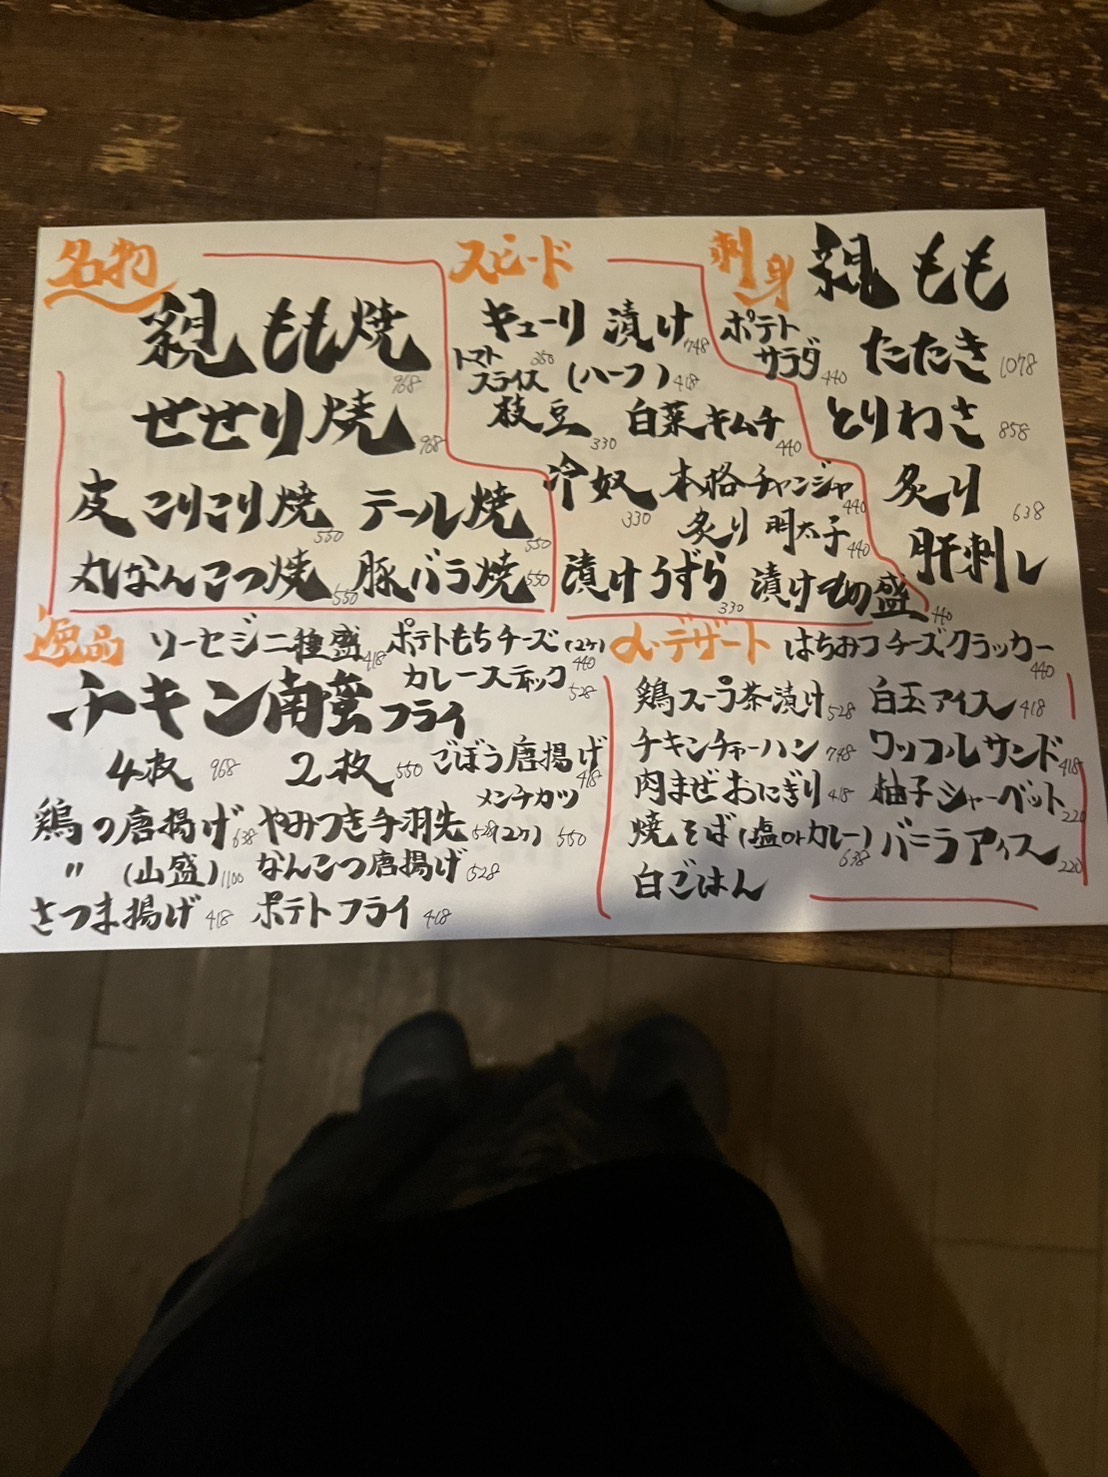 名物
親もも焼 968
せせり焼 968
皮こりこり焼 550 テール焼 550
丸なんこつ焼 550 豚バラ焼 550
スピード
キューリ漬け 748
トマトスライス 350 (ハーフ) 418
ポテトサラダ 440
枝豆 330 白菜キムチ 440
冷奴 330 本格チャンジャ 440
炙り明太子 440
漬けうずら 330 漬けもの盛 440
刺身
親もも
たたき 1078
とりわさ 858
炙り
肝刺し 638
逸品
ソーセージ二種盛 418 ポテトもちチーズ(2ケ) 440
カレースティック 528
チキン南蛮フライ
4枚 968 2枚 550 ごぼう唐揚げ 418
メンチカツ
鶏の唐揚げ 638 やみつき手羽先 528 (2ケ) 550
〃 (山盛) 1100 なんこつ唐揚げ 528
さつま揚げ 418 ポテトフライ 418
〆・デザート
はちみつチーズクラッカー 440
鶏スープ茶漬け 528 白玉アイス 418
チキンチャーハン 748 ワッフルサンド 418
肉まぜおにぎり 418 柚子シャーベット 220
焼そば(塩orカレー) 638 バニラアイス 220
白ごはん